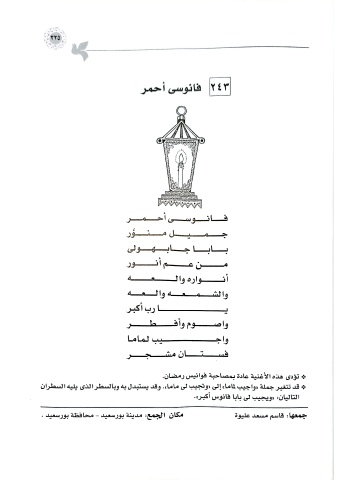 ٣٣٥
٢٤٣ فانوسى أحمر
فانوسى أحمر
جميل منوَّر
بابا جابهولى
من عم أنور
أنواره والعه
والشمعه والعه
يا رب أكبر
واصوم وأفطر
واجيب لماما
فستان مشجر
* تؤدى هذه الأغنية عادة بمصاحبة فوانيس رمضان.
* قد تتغير جملة «واجيب لماما» إلى «وتجيب لى ماما»، وقد يستبدل به وبالسطر الذى يليه السطران
التاليان: «ويجيب لى بابا فانوس أكبر».
جمعها: قاسم مسعد عليوة مكان الجمع: مدينة بورسعيد - محافظة بورسعيد .